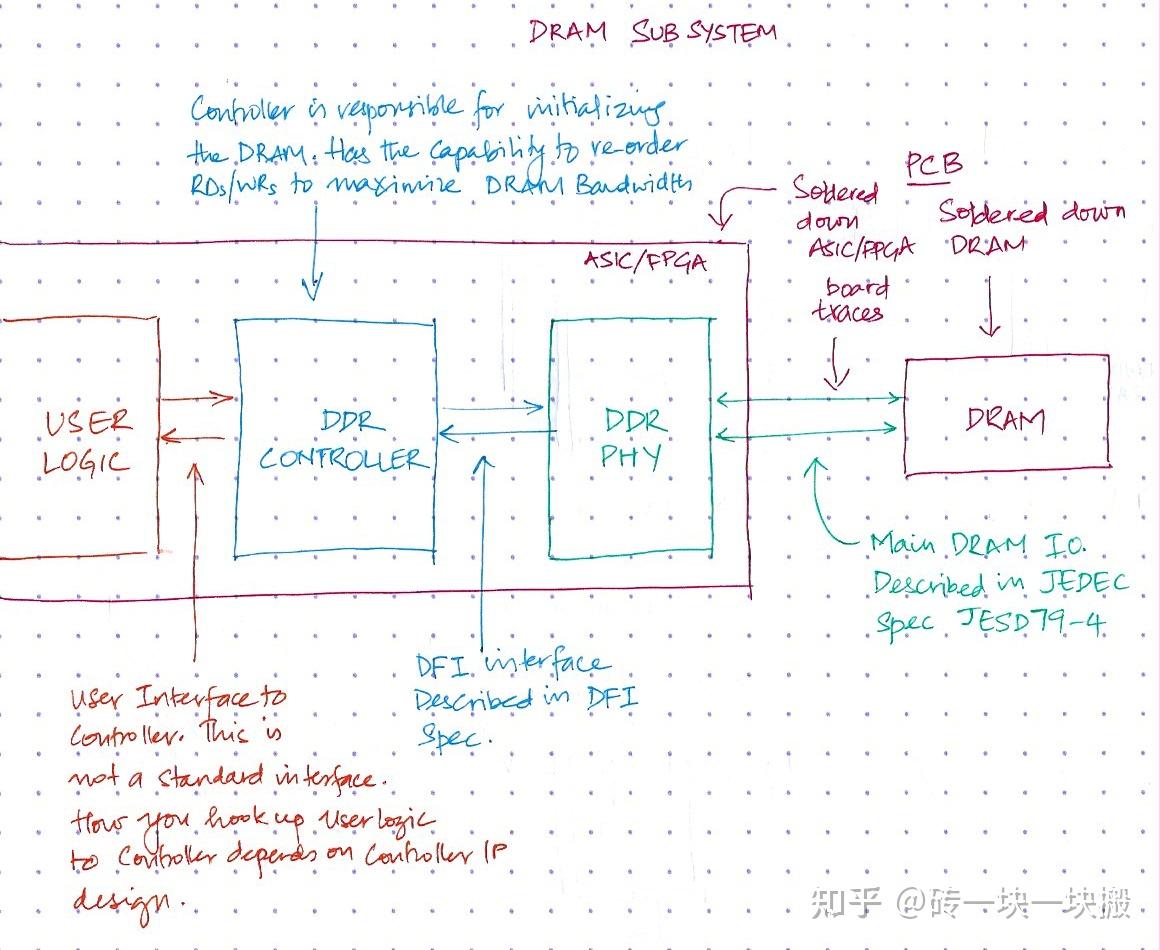 DRAM SUBSYSTEM
Controller is responsible for initializing
the DRAM. Has the capability to re-order
RDs/WRs to maximize DRAM Bandwidth
PCB
Soldered
down
ASIC/FPGA
Soldered down
DRAM
ASIC/FPGA
board
traces
USER
LOGIC
DDR
CONTROLLER
DDR
PHY
DRAM
Main DRAM IO.
Described in JEDEC
Spec JESD79-4
DFI interface
Described in DFI
Spec.
User Interface to
Controller. This is
not a standard interface.
How you hook up User logic
to Controller depends on Controller IP
design.
知乎 @砖一块一块搬